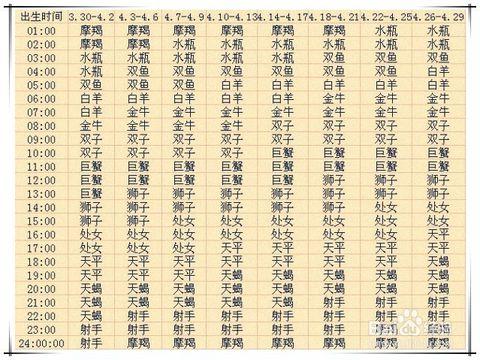 出生时间 3.30-4.2 4.3-4.6 4.7-4.9 4.10-4.13 4.14-4.17 4.18-4.21 4.22-4.25 4.26-4.29
01:00 摩羯 摩羯 摩羯 摩羯 摩羯 摩羯 水瓶 水瓶
02:00 摩羯 摩羯 水瓶 水瓶 水瓶 水瓶 水瓶 水瓶
03:00 水瓶 水瓶 水瓶 水瓶 水瓶 双鱼 双鱼 双鱼
04:00 水瓶 双鱼 双鱼 双鱼 双鱼 双鱼 双鱼 白羊
05:00 双鱼 双鱼 双鱼 白羊 白羊 白羊 白羊 白羊
06:00 白羊 白羊 白羊 白羊 白羊 金牛 金牛 金牛
07:00 白羊 金牛 金牛 金牛 金牛 金牛 金牛 金牛
08:00 金牛 金牛 金牛 金牛 双子 双子 双子 双子
09:00 双子 双子 双子 双子 双子 双子 双子 双子
10:00 双子 双子 双子 双子 巨蟹 巨蟹 巨蟹 巨蟹
11:00 巨蟹 巨蟹 巨蟹 巨蟹 巨蟹 巨蟹 巨蟹 巨蟹
12:00 巨蟹 巨蟹 巨蟹 巨蟹 狮子 狮子 狮子 狮子
13:00 巨蟹 狮子 狮子 狮子 狮子 狮子 狮子 狮子
14:00 狮子 狮子 狮子 狮子 狮子 狮子 处女 处女
15:00 狮子 狮子 狮子 处女 处女 处女 处女 处女
16:00 处女 处女 处女 处女 处女 处女 处女 天平
17:00 处女 处女 处女 天平 天平 天平 天平 天平
18:00 天平 天平 天平 天平 天平 天平 天平 天蝎
19:00 天平 天平 天平 天蝎 天蝎 天蝎 天蝎 天蝎
20:00 天平 天蝎 天蝎 天蝎 天蝎 天蝎 天蝎 天蝎
21:00 天蝎 天蝎 天蝎 天蝎 射手 射手 射手 射手
22:00 天蝎 射手 射手 射手 射手 射手 射手
23:00 射手 射手 射手 射手 射手 射手
24:00:00 射手 摩羯 摩羯 摩羯 摩羯 摩羯 摩羯 摩羯